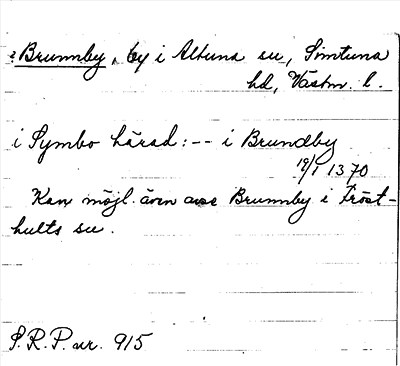 ? Brunnby, by i Altuna sn, Simtuna
hd, Västm. l.
i Symbo härad: -- i Brundby
19/1 1370
Kan möjl. även avse Brunnby i Fröst-
hults sn.
S.R.P. nr. 915